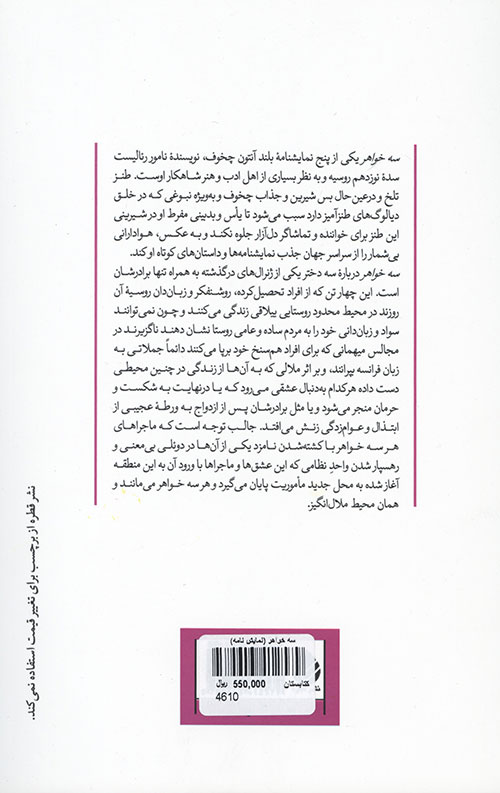 سه خواهر یکی از پنج نمایشنامهٔ بلند آنتون چخوف، نویسندهٔ نامور رئالیست
سدهٔ نوزدهم روسیه و به نظر بسیاری از اهل ادب و هنر شاهکار اوست. طنز
تلخ و درعین‌حال بس شیرین و جذاب چخوف و به‌ویژه نبوغی که در خلق
دیالوگ‌های طنزآمیز دارد سبب می‌شود تا یأس و بدبینی مفرط او در شیرینی
این طنز برای خواننده و تماشاگر دل‌آزار جلوه نکند و به عکس، هوادارانی
بی‌شمار را از سراسر جهان جذب نمایشنامه‌ها و داستان‌های کوتاه او کند.
سه خواهر دربارهٔ سه دختر یکی از ژنرال‌های درگذشته به همراه تنها برادرشان
است. این چهار تن که از افراد تحصیل‌کرده، روشنفکر و زبان‌دان روسیهٔ آن
روزند در محیط محدود روستایی ییلاقی زندگی می‌کنند و چون نمی‌توانند
سواد و زبان‌دانی خود را به مردم ساده و عامی روستا نشان دهند ناگزیرند در
مجالس میهمانی که برای افراد هم‌سنخ خود برپا می‌کنند دائماً جملاتی به
زبان فرانسه بپرانند، و بر اثر ملالی که به آن‌ها از زندگی در چنین محیطی
دست داده هرکدام به‌دنبال عشقی می‌رود که یا درنهایت به شکست و
حرمان منجر می‌شود و یا مثل برادرشان پس از ازدواج به ورطهٔ عجیبی از
ابتذال و عوام‌زدگی زنش می‌افتد. جالب توجه است که ماجراهای
هر سه خواهر با کشته‌شدن نامزد یکی از آن‌ها در دوئلی بی‌معنی و
رهسپار شدن واحدِ نظامی که این عشق‌ها و ماجراها با ورود آن به این منطقه
آغاز شده به محل جدید مأموریت پایان می‌گیرد و هر سه خواهر می‌مانند و
همان محیط ملال‌انگیز.
نشر قطره از برچسب برای تغییر قیمت استفاده نمی‌کند.
سه خواهر (نمایش نامه)
کتابستان 550,000 ریال
4610